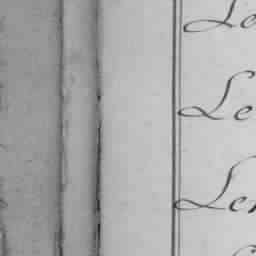 Le
Le
Len